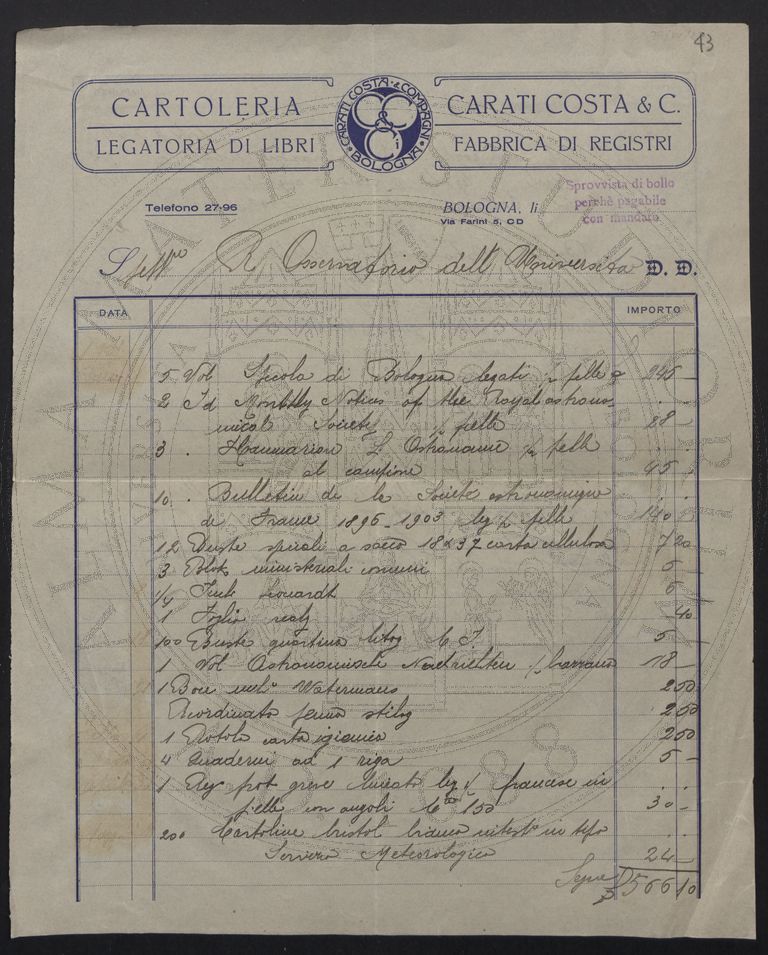 43
CARTOLERIA
LEGATORIA DI LIBRI
CARATI COSTA & COMPAGNI · BOLOGNA
CARATI COSTA & C.
FABBRICA DI REGISTRI
Telefono 27-96
BOLOGNA, li
Via Farini 5, CD
Sprovvista di bollo
perchè pagabile
con mandato
Spettle R. Osservatorio dell' Università D. D.
DATA IMPORTO
5 Vol Specola di Bologna legati ½ pelle 245 -
2 Id Monthly Notices of the Royal astrono-
mical Society ½ pelle 28 -
3 . Flammarion L' Astronomie ½ pelle
al campione 45 -
10 . Bulletin de la Societe astronomique
de France 1896-1903 leg ½ pelle 140 -
12 Buste speciali a sacco 18x37 carta cellulosa 7 20
3 Bloks ministeriali comuni 5 -
¼ Leonardi 5 -
1 Foglio 40
100 Buste quartina 5 -
1 Vol Astronomische Nachrichten 18 -
1 Bocc Watermans 2 50
Riordinata penna stilog 2 50
1 Rotolo carta igienica 2 50
4 Quaderni ad 1 riga 5 -
1 Reg francese in
pelle con angoli 150 30 -
200 Cartoline bristol bianco intest in tipo
Servizio Meteorologico 24 -
Segue 566 10